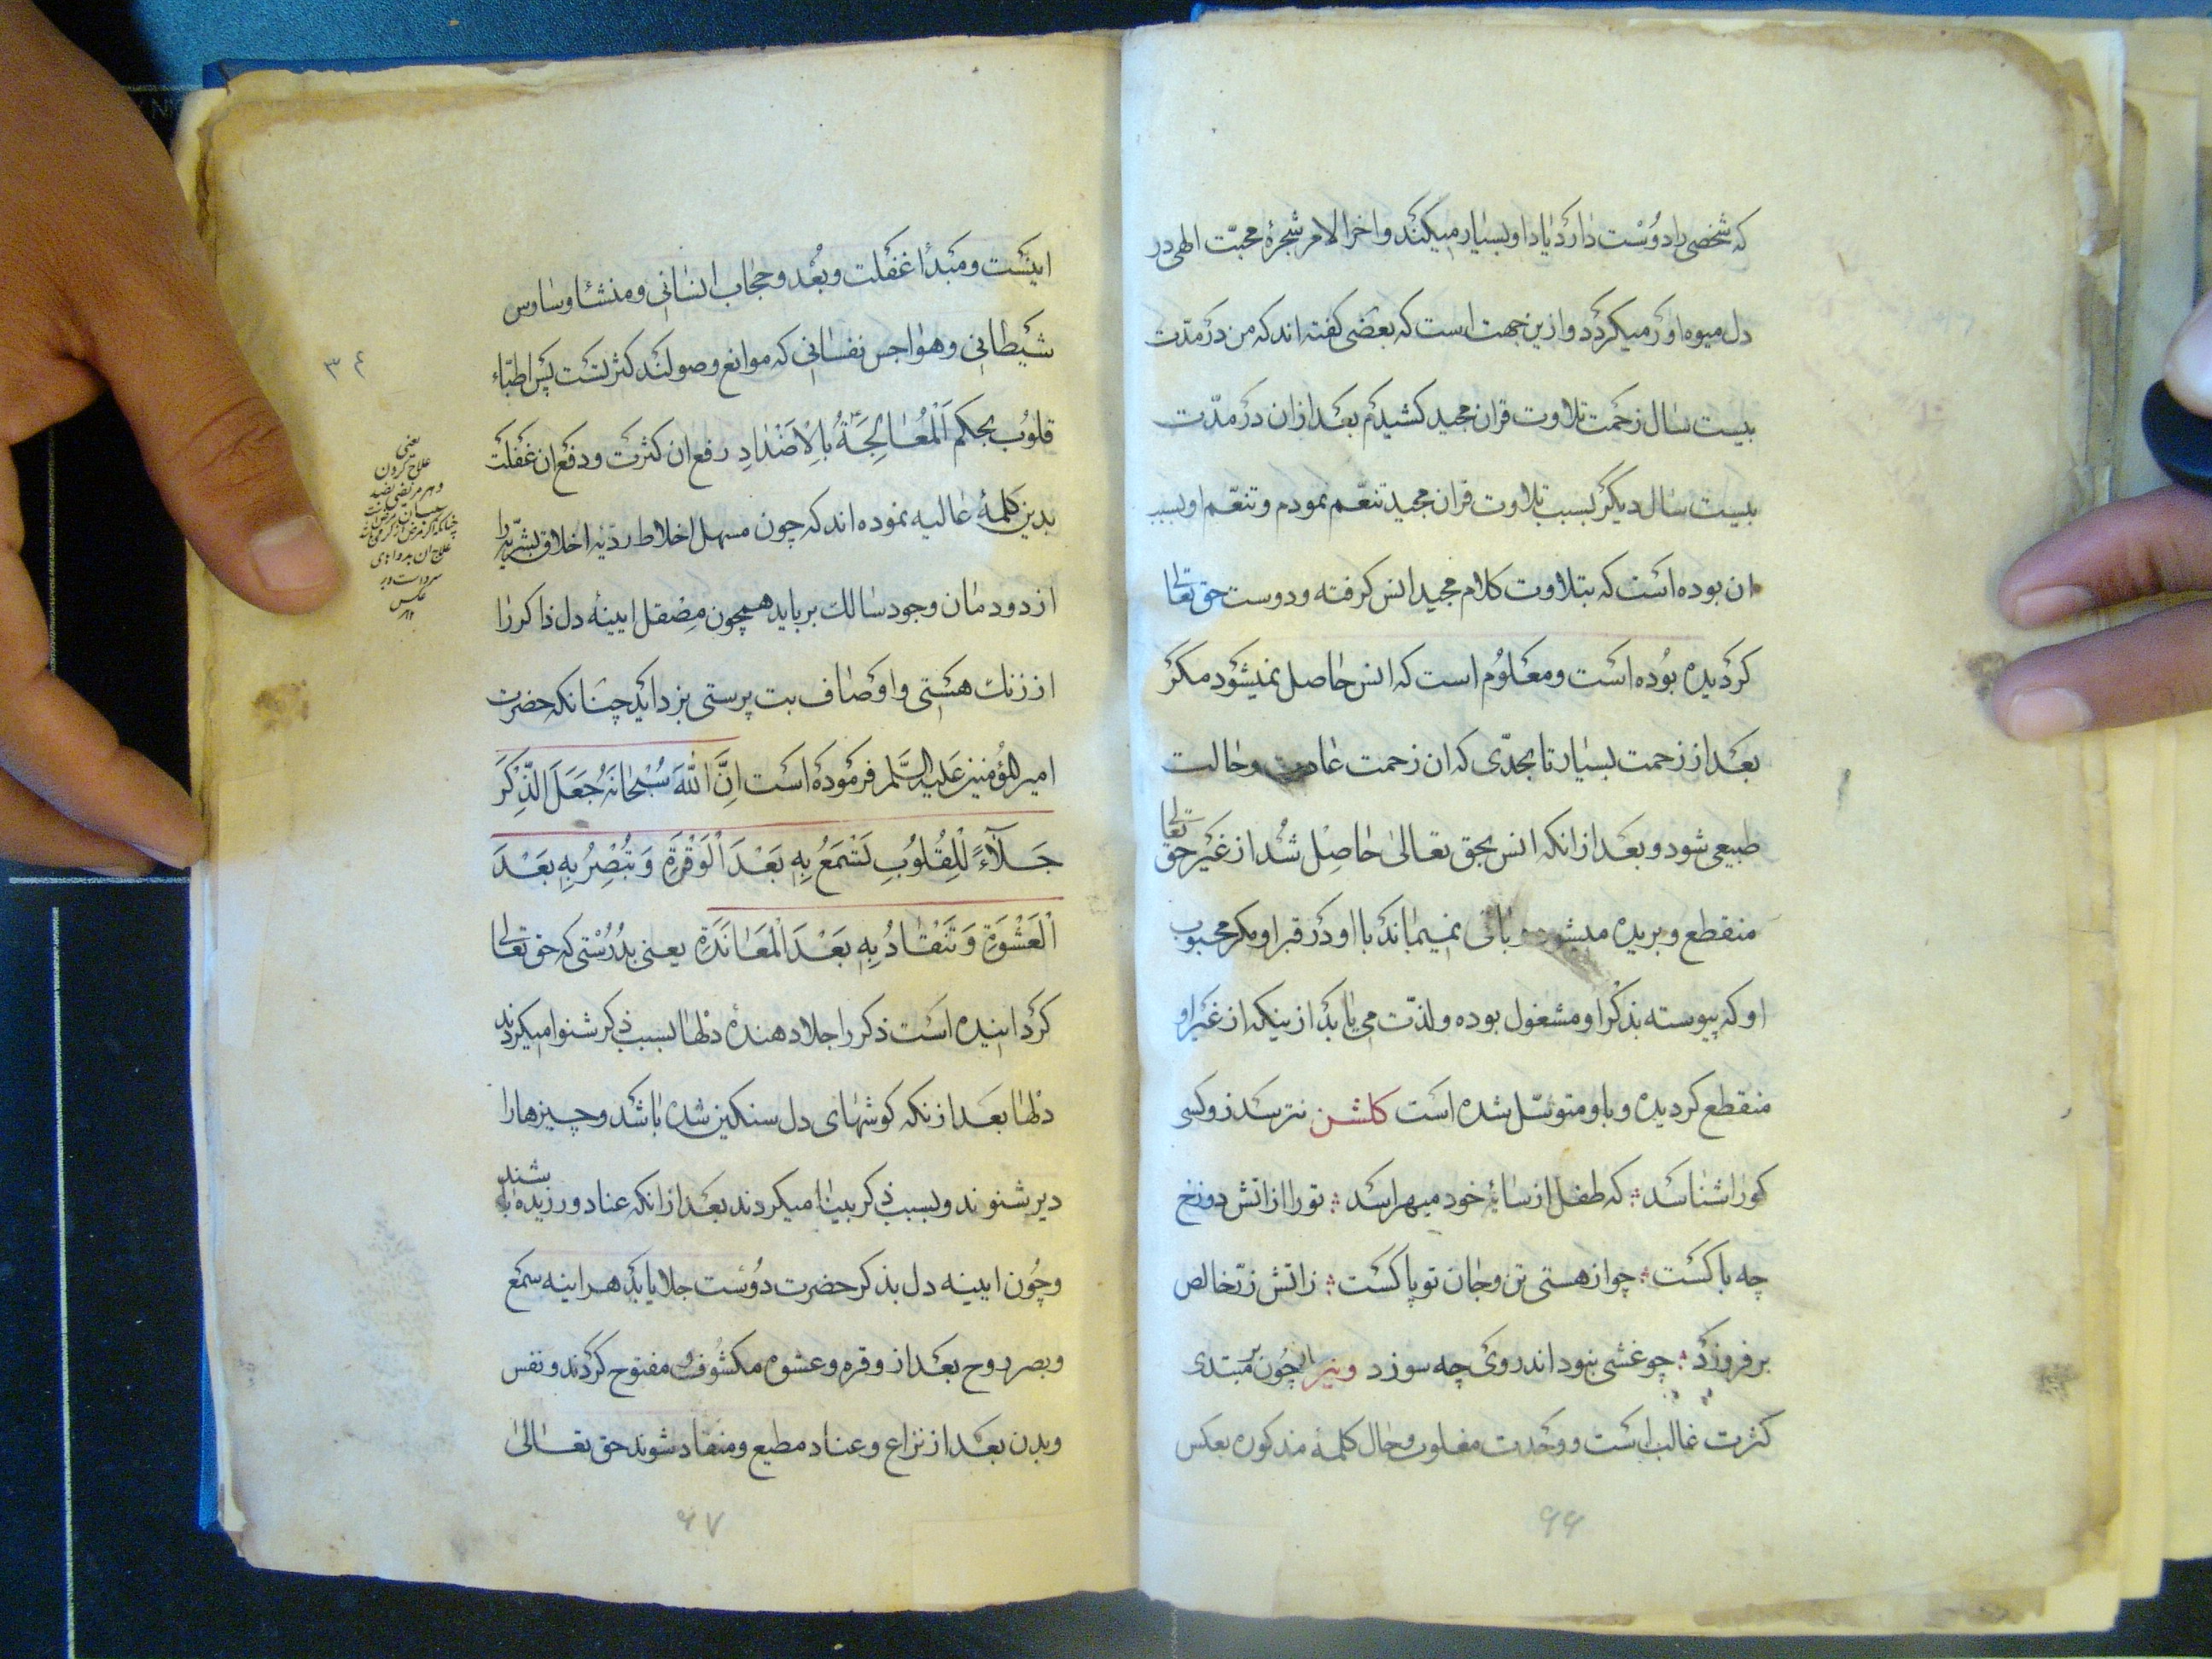 که شخصی را دوست دارد یاد او بسیار میکند و اخر الامر شجرهٔ محبّت الهی در
دل میوه اور میکردد و ازین جهت است که بعضی کفته اند که من در مدّت
بیست سال زحمت تلاوت قران مجید کشیدم بعد از ان در مدّت
بیست سال دیکر بسبب تلاوت قران مجید تنعّم نمودم و تنعّم او بسبب
ان بوده است که بتلاوت کلام مجید انس کرفته و دوست حق تعالی
کردیده بوده است و معلوم است که انس حاصل نمیشود مکر
بعد از زحمت بسیار تا بحدّی که ان زحمت عادت و حالت
طبیعی شود و بعد از انکه انس بحق تعالی حاصل شد از غیر حق تعالی
منقطع و بریده میشود و باقی نمیماند با او در قبر او مکر محبوب
او که پیوسته بذکر او مشغول بوده و لذّت می یابد از ینکه از غیر او
منقطع کردیده و باو متوسّل شده است کلشن نترسد زو کسی
کورا شناسد ؞ که طفل از سایهٔ خود میهراسد ؞ تو را از اتش دوزخ
چه باکست ؞ چو از هستی تن و جان تو پاکست ؞ ز اتش زرّ خالص
بر فروزد ؞ چو غشی نبود اندر وی چه سوزد و نیز چون بر مبتدی
کثرت غالب است و وحدت مغلوب و حال کلمهٔ مذکوره بعکس
۶۶
اینست و مبدأ غفلت و بُعْد و حجاب انسانی و منشأ وساوس
شیطانی و هواجس نفسانی که موانع وصولند کثرتست پس اطبّاء
قلوب بحکم اَلْمُعٰالِجَةُ بِالْاَضْدٰادِ رفع ان کثرت و دفع ان غفلت
بدین کلمهٔ عالیه نموده اند که چون مسهل اخلاط ردّیه اخلاق بشریّه را
از دودمان وجود سالک برباید همچون مِصْقل ایینهٔ دل ذاکر را
از زنک هستی و اوصاف بت پرستی بزداید چنانکه حضرت
امیر المؤمنین علیه السّلم فرموده است اِنَّ اللّٰهَ سُبْحٰانَهُ جَعَلَ الذِّکْرَ
جَلٰآءً لِلْقُلُوبِ تَسْمَعُ بِهِ بَعْدَ الْوَقْرَةِ وَ تُبْصِرُ بِهِ بَعْدَ
الْعَشْوَةِ وَ تَنْقٰادُ بِهِ بَعْدَ الْمُعَانَدَةِ یعنی بدرستی که حق تعالی
کردانیده است ذکر را جلا دهندهٔ دلها بسبب ذکر شنوا میکردند
دلها بعد از نکه کوشهای دل سنکین شده باشد و چیزها را
دیر شنوند و بسبب ذکر بینا میکردند بعد از انکه عناد ورزیده باشند
و چون ایینه دل بذکر حضرت دوست جلا یابد هراینه سمع
و بصر روح بعد از وقره و عشوه مکشوف و مفتوح کردند و نفس
و بدن بعد از نزاع و عناد مطیع و منقاد شوند حق تعالی
۶۷
۳۴
یعنی
علاج کردن
و هر مرضی بضد
علاج ان بدواهای
سرد است و بر
عکس